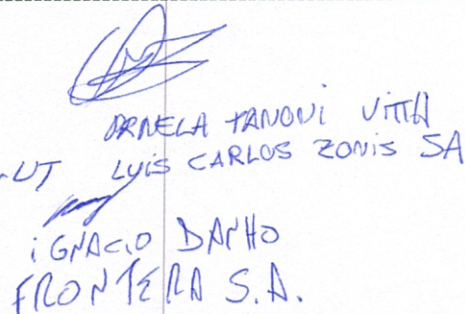 ORNELA TANONI VITTA
-UT LUIS CARLOS ZONIS SA
IGNACIO DANHO
FRONTERA S.A.